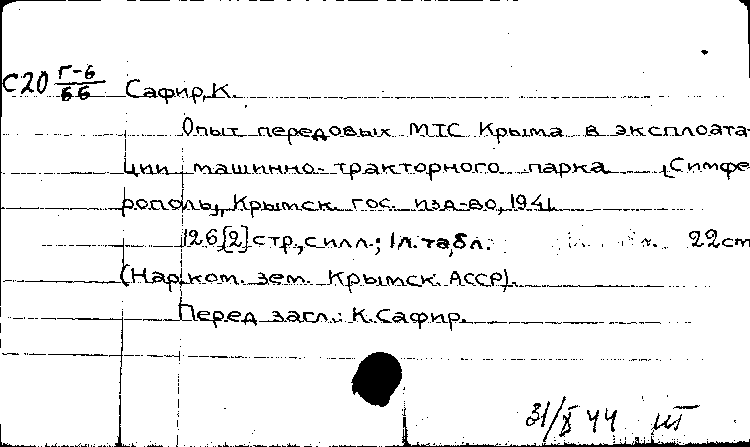 С20 Г-6/66 Сафир, К.
Опыт передовых МТС Крыма в эксплоата-
ции машинно-тракторного парка. [Симфе-
рополь], Крымск. гос. изд-во, 1941.
126[2] стр., с илл.; 1 л. табл. 22 cm
(Нар. ком. зем. Крымск. АССР).
Перед загл.: К. Сафир.
31/X 44